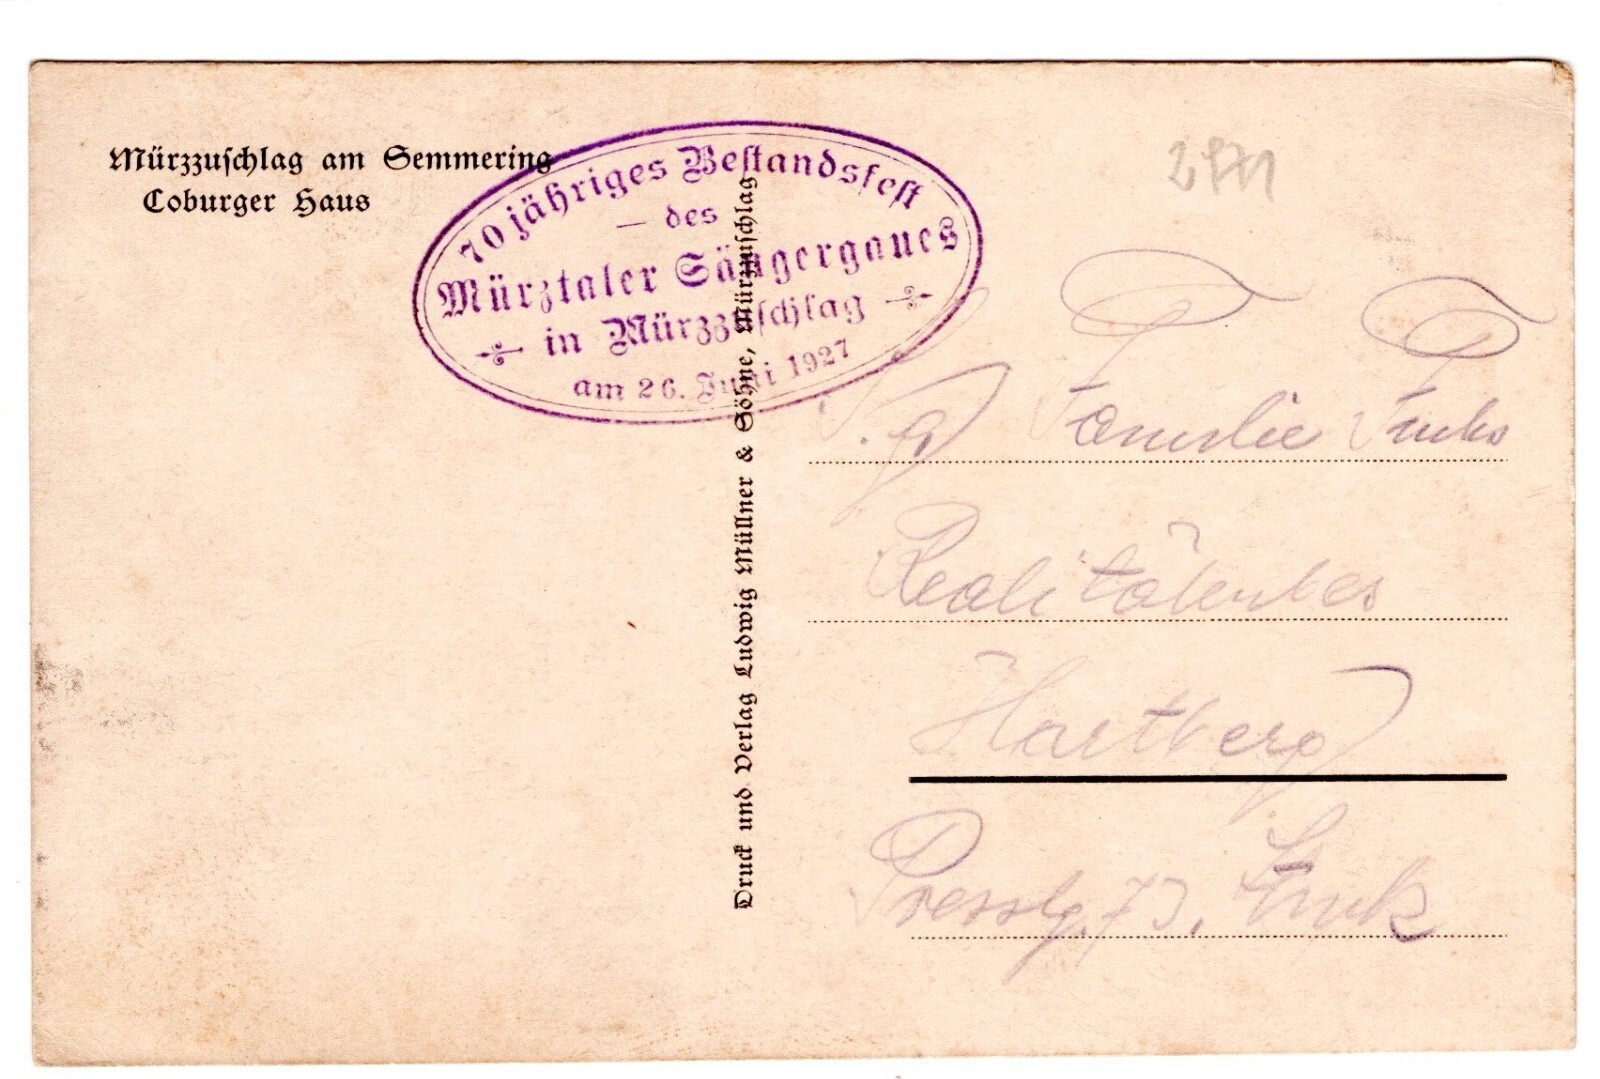 Mürzzuschlag am Semmering
Coburger Haus
70 jähriges Bestandsfest
— des
Mürztaler Sängergaues
in Mürzzuschlag
am 26. Juni 1927
Druck und Verlag Ludwig Müllner & Söhne, Mürzzuschlag
Familie Fuchs
Realitätenbes
Hartberg
73,